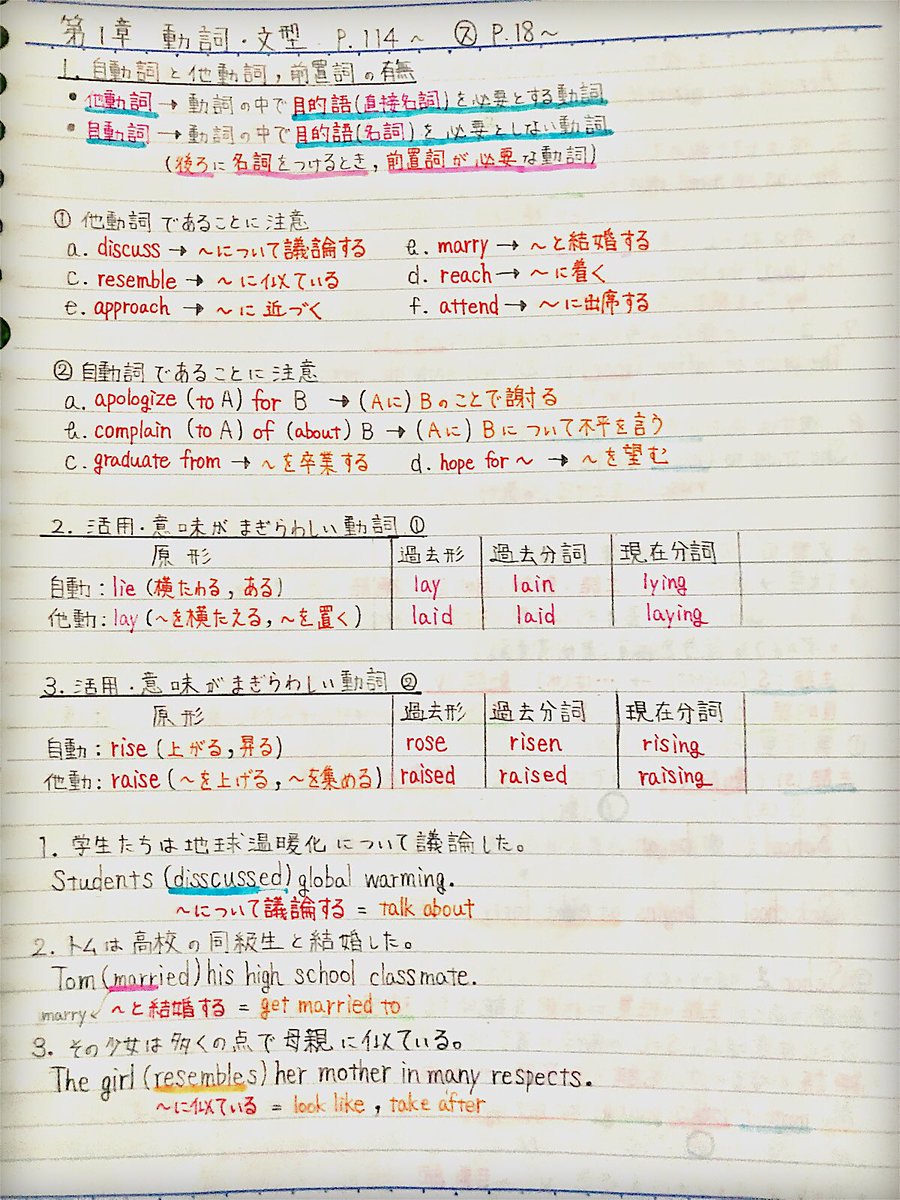 第1章 動詞・文型 P.114～ ㋦ P.18～
1. 自動詞と他動詞, 前置詞の有無
• 他動詞 → 動詞の中で目的語(直接名詞)を必要とする動詞
• 自動詞 → 動詞の中で目的語(名詞)を必要としない動詞
(後ろに名詞をつけるとき, 前置詞が必要な動詞)
① 他動詞であることに注意
a. discuss → ～について議論する b. marry → ～と結婚する
c. resemble → ～に似ている d. reach → ～に着く
e. approach → ～に近づく f. attend → ～に出席する
② 自動詞であることに注意
a. apologize (to A) for B → (Aに) Bのことで謝する
b. complain (to A) of (about) B → (Aに) Bについて不平を言う
c. graduate from → ～を卒業する d. hope for ～ → ～を望む
2. 活用・意味がまぎらわしい動詞 ①
原形 過去形 過去分詞 現在分詞
自動 : lie (横たわる, ある) lay lain lying
他動 : lay (～を横たえる, ～を置く) laid laid laying
3. 活用・意味がまぎらわしい動詞 ②
原形 過去形 過去分詞 現在分詞
自動 : rise (上がる, 昇る) rose risen rising
他動 : raise (～を上げる, ～を集める) raised raised raising
1. 学生たちは地球温暖化について議論した。
Students (disscussed) global warming.
～について議論する = talk about
2. トムは高校の同級生と結婚した。
Tom (married) his high school classmate.
marry ～と結婚する = get married to
3. その少女は多くの点で母親に似ている。
The girl (resembles) her mother in many respects.
～に似ている = look like , take after